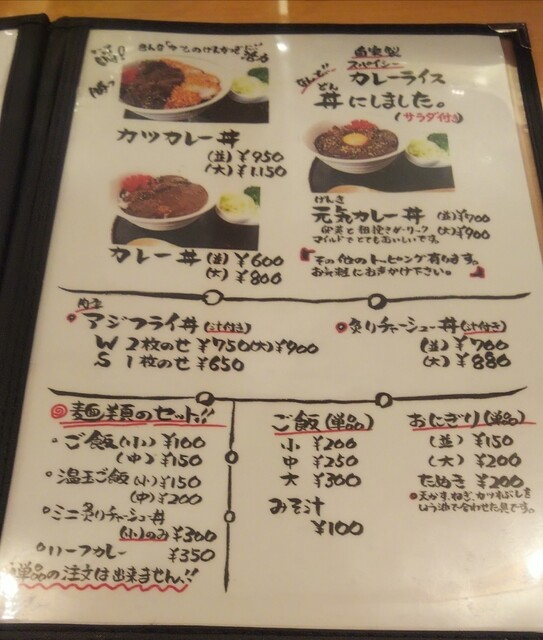 自家製
スパイシー
カレーライス
丼にしました。
(サラダ付き)
カツカレー丼
(並)¥950
(大)¥1.150
カレー丼 (並)¥600
(大)¥800
げんき
元気カレー丼 (並)¥700
(大)¥900
卵黄と粗挽きガーリック
マイルドでとてもおいしいです。
その他のトッピング有ります。
お気軽にお声かけ下さい。
肉厚
アジフライ丼(汁付き)
W 2枚のせ ¥750(大)¥900
S 1枚のせ ¥650
炙りチャーシュー丼(汁付き)
(並)¥700
(大)¥880
麺類のセット!!
ご飯(小)¥100
(中)¥150
温玉ご飯(小)¥150
(中)¥200
ミニ炙りチャーシュー丼
(小)のみ¥300
ハーフカレー
¥350
単品の注文は出来ません!!
ご飯(単品)
小 ¥200
中 ¥250
大 ¥300
みそ汁
¥100
おにぎり(単品)
(並)¥150
(大)¥200
たぬき ¥200
天かす、ねぎ、カツオぶしを
しょう油で合わせた具です。